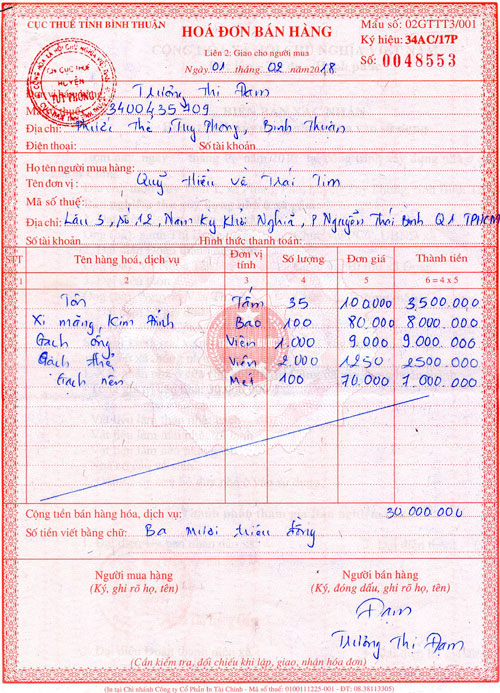 CỤC THUẾ TỈNH BÌNH THUẬN
HOÁ ĐƠN BÁN HÀNG
Liên 2: Giao cho người mua
Ngày 01 tháng 02 năm 2018
Mẫu số: 02GTTT3/001
Ký hiệu: 34AC/17P
Số: 0048553
CHI CỤC THUẾ
HUYỆN
TUY PHONG
Trương Thị Đạm
3400435409
Địa chỉ: Phước Thể, Tuy Phong, Bình Thuận
Điện thoại: Số tài khoản
Họ tên người mua hàng:
Tên đơn vị: Quỹ Hiểu và Trái Tim
Mã số thuế:
Địa chỉ: Lầu 3, số 12, Nam Kỳ Khởi Nghĩa, P Nguyễn Thái Bình Q1 TPHCM
Số tài khoản Hình thức thanh toán:
STT Tên hàng hoá, dịch vụ Đơn vị tính Số lượng Đơn giá Thành tiền
1 2 3 4 5 6 = 4 x 5
Tôn Tấm 35 100.000 3.500.000
Xi măng, Kim Đỉnh Bao 100 80.000 8.000.000
Gạch ống Viên 1.000 9.000 9.000.000
Gạch thẻ Viên 2.000 1250 2500.000
Gạch nền Mét 100 70.000 7.000.000
Cộng tiền bán hàng hóa, dịch vụ: 30.000.000
Số tiền viết bằng chữ: Ba mươi triệu đồng
Người mua hàng Người bán hàng
(Ký, ghi rõ họ, tên) (Ký, đóng dấu, ghi rõ họ, tên)
Đạm
Trương Thị Đạm
(Cần kiểm tra, đối chiếu khi lập, giao, nhận hóa đơn)
(In tại Chi nhánh Công ty Cổ Phần In Tài Chính - Mã số thuế: 0100111225-001 - ĐT: 08.38113305)